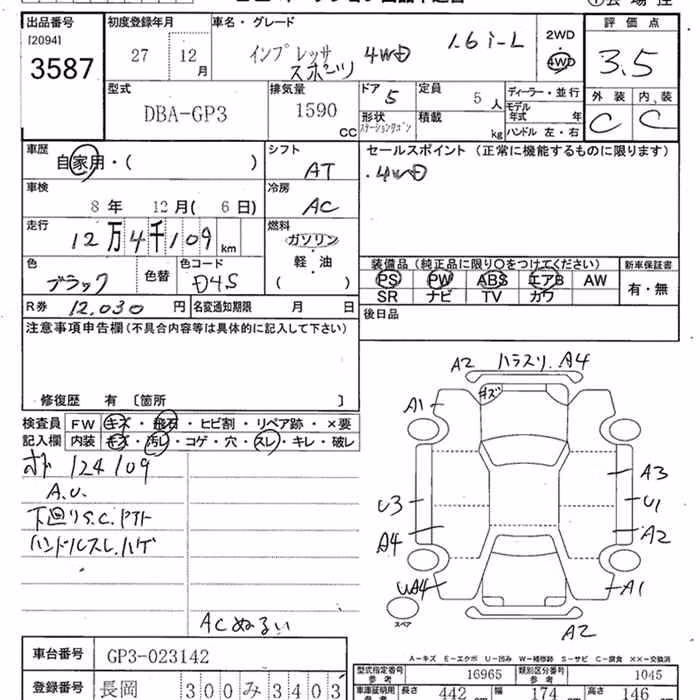 出品番号 初度登録年月 車名・グレード 評価点
[2094] 27 12月 インプレッサ スポーツ 4WD 1.6i-L 2WD 4WD 3.5
3587 外装 内装
型式 排気量 ドア 5 定員 5人 ディーラー・並行 C C
DBA-GP3 1590 CC 形状 ステーションワゴン 積載 kg モデル年式 年
ハンドル 左・右
車歴 自家用・( ) シフト AT セールスポイント (正常に機能するものに限ります)
・4WD
車検 8年 12月(6日) 冷房 AC
走行 12万4千109km 燃料 ガソリン
軽・油
( )
色 ブラック 色替 色コード D4S
装備品 (純正品に限り〇をつけてください) 新車保証書
PS PW ABS エアB AW 有・無
SR ナビ TV カワ
R券 12,030円 名変通知期限 月 日 後日品
注意事項申告欄(不具合内容等は具体的に記入して下さい)
修復歴 有 〔箇所 〕
検査員 FW キズ・飛石・ヒビ割・リペア跡・×要
記入欄 内装 キズ・汚レ・コゲ・穴・スレ・キレ・破レ
124109
A.U.
下廻りS.C.
ハンドルスレ.ハゲ
ACぬるい
A2 ハラスリ.A4
キズ
A1
U3 A3 U1
A4 A2
UA4 A1
スペア
A2
車台番号 GP3-023142
登録番号 長岡 300み3403
A-キズ E-エクボ U-凹み W-補修跡 S-サビ C-腐食 XX-交換済
型式指定番号 参考 16965 類別区分番号 参考 1045
車庫証明用 長さ 442 幅 174 高さ 146